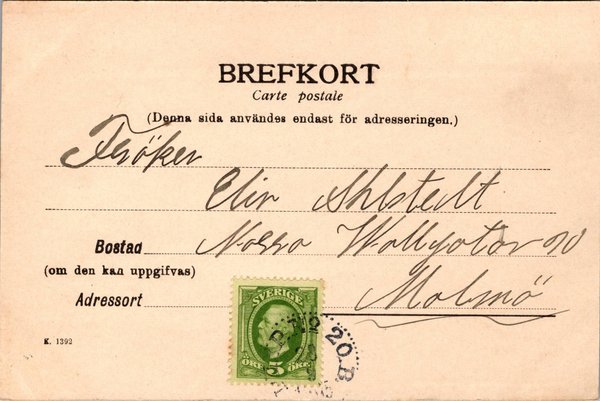 BREFKORT
Carte postale
(Denna sida användes endast för adresseringen.)
Fröken
Elin Ahlstedt
Bostad Norra
(om den kan uppgifvas)
Adressort Malmö
K. 1392
SVERIGE
ÖRE 5 ÖRE
No 20.B.